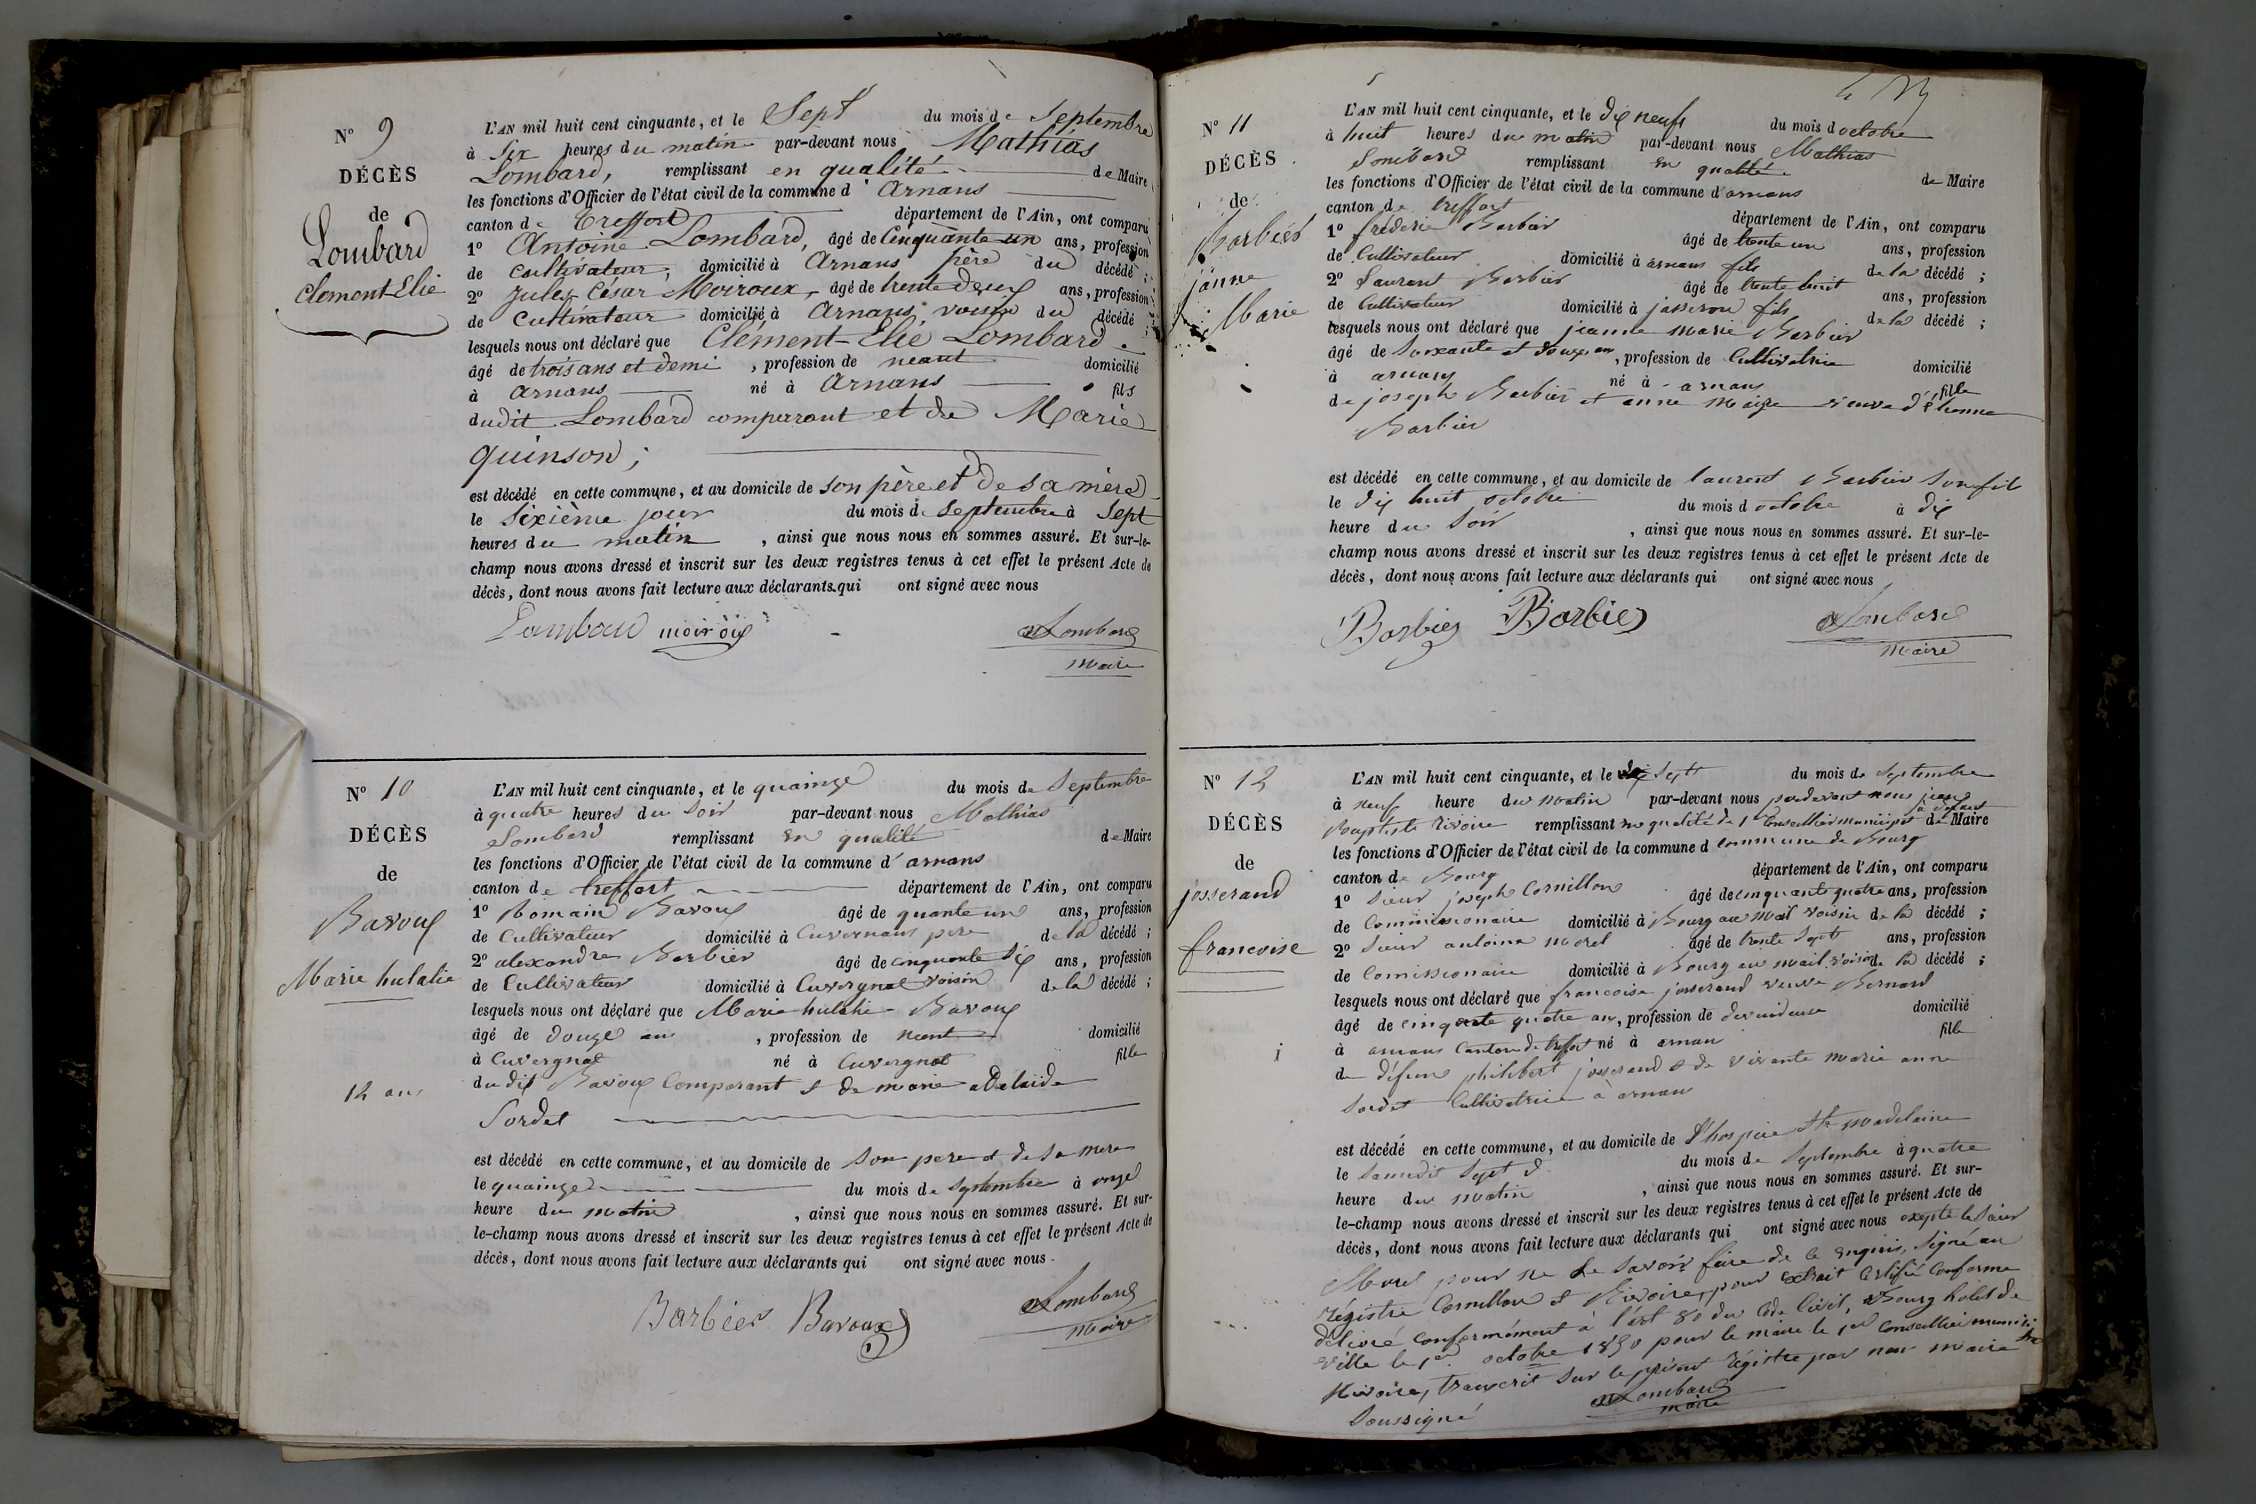 N° 9
DÉCÈS
de
Lombard
Clement Elie
L'AN mil huit cent cinquante, et le Sept du mois de Septembre
à Six heures du matin par-devant nous Mathias
Lombard, remplissant en qualité de Maire
les fonctions d'Officier de l'état civil de la commune d'Arnans
canton de Treffort département de l'Ain, ont comparu
1° Antoine Lombard, âgé de Cinquante un ans, profession
de cultivateur, domicilié à Arnans père du décédé ;
2° Jules César Moiroux, âgé de trente deux ans, profession
de Cultivateur domicilié à Arnans, voisin du décédé ;
lesquels nous ont déclaré que Clément-Elie Lombard.
âgé de trois ans et demi, profession de neant domicilié
à Arnans né à Arnans fils
dudit Lombard comparant et de Marie
Quinson ;
est décédé en cette commune, et au domicile de son père et de sa mère
le sixième jour du mois de Septembre à Sept
heures du matin, ainsi que nous nous en sommes assuré. Et sur-le-
champ nous avons dressé et inscrit sur les deux registres tenus à cet effet le présent Acte de
décès, dont nous avons fait lecture aux déclarants qui ont signé avec nous
Lombard moiroux Lombard
maire
N° 10
DÉCÈS
de
Bavoux
Marie hulalie
12 ans
L'AN mil huit cent cinquante, et le quainze du mois de Septembre
à quatre heures du Soir par-devant nous Mathias
Lombard remplissant en qualité de Maire
les fonctions d'Officier de l'état civil de la commune d'arnans
canton de treffort département de l'Ain, ont comparu
1° Romain Bavoux âgé de quante un ans, profession
de Cultivateur domicilié à Cuvernans pere de la décédé ;
2° alexandre Barbier âgé de cinquante dix ans, profession
de Cultivateur domicilié à Cuvergnat voisin de la décédé ;
lesquels nous ont déclaré que Marie hulalie Bavoux
âgé de douze an, profession de neant domicilié
à Cuvergnat né à Cuvergnat fille
du dit Bavoux Comparant et de marie adelaide
Sordet
est décédé en cette commune, et au domicile de son pere et de sa mere
le quainze du mois de Septembre à onze
heure du matin, ainsi que nous nous en sommes assuré. Et sur-
le-champ nous avons dressé et inscrit sur les deux registres tenus à cet effet le présent Acte de
décès, dont nous avons fait lecture aux déclarants qui ont signé avec nous.
Barbier Bavoux Lombard
Maire
N° 11
DÉCÈS
de
Barbier
jänne
Marie
L'AN mil huit cent cinquante, et le dix neuf du mois d octobre
à huit heures du matin par-devant nous Mathias
Lombard remplissant en qualité de Maire
les fonctions d'Officier de l'état civil de la commune d'arnans
canton de treffort département de l'Ain, ont comparu
1° fréderic Barbier âgé de trente un ans, profession
de Cultivateur domicilié à arnans fils de la décédé ;
2° Laurent Barbier âgé de trente huit ans, profession
de Cultivateur domicilié à jasseron fils de la décédé ;
lesquels nous ont déclaré que jeanne marie Barbier
âgé de soixante et douze an, profession de Cultivatrice domicilié
à arnans né à arnans fille
de joseph Barbier et anne veuve d'étienne
Barbier
est décédé en cette commune, et au domicile de laurent Barbier son fils
le dix huit octobre du mois d octobre à dix
heure du Soir, ainsi que nous nous en sommes assuré. Et sur-le-
champ nous avons dressé et inscrit sur les deux registres tenus à cet effet le présent Acte de
décès, dont nous avons fait lecture aux déclarants qui ont signé avec nous
Barbier Barbier Lombard
Maire
N° 12
DÉCÈS
de
josserand
francoise
L'AN mil huit cent cinquante, et le Sept du mois de Septembre
à neuf heure du matin par-devant nous pardevant nous jean
Baptiste Rivoire remplissant en qualité de 1er Conseillier municipal de Maire
les fonctions d'Officier de l'état civil de la commune d commune de Bourg
canton de Bourg département de l'Ain, ont comparu
1° Sieur joseph Cornillon âgé de cinquante quatre ans, profession
de Commissionaire domicilié à Bourg au mail voisin de la décédé ;
2° Sieur antoine morel âgé de trente Sept ans, profession
de Comissionaire domicilié à Bourg au mail voisin de la décédé ;
lesquels nous ont déclaré que francoise josserand veuve Bernard
âgé de cinquante quatre an, profession de devindeuse domicilié
à arnans Canton de treffort né à arnan fille
de défun philibert josserand et de vivante marie anne
Sordet Cultivatrice à arnan
est décédé en cette commune, et au domicile de l'hospice Ste Madelaine
le Samedit Sept d du mois de Septembre à quatre
heure du matin, ainsi que nous nous en sommes assuré. Et sur-
le-champ nous avons dressé et inscrit sur les deux registres tenus à cet effet le présent Acte de
décès, dont nous avons fait lecture aux déclarants qui ont signé avec nous exepté le Sieur
Morel pour ne le savoir faire de ce enquis, Signé au
régistre Cornillon et Rivoire, pour extrait Certifié Conforme
délivré conformément à l'art 80 du Code Civil, à Bourg hotel de
ville le 1er octobre 1850 pour le maire le 1er Conseillier
Rivoire, transcrit sur le présent régistre par nous maire
Soussigné Lombard
maire